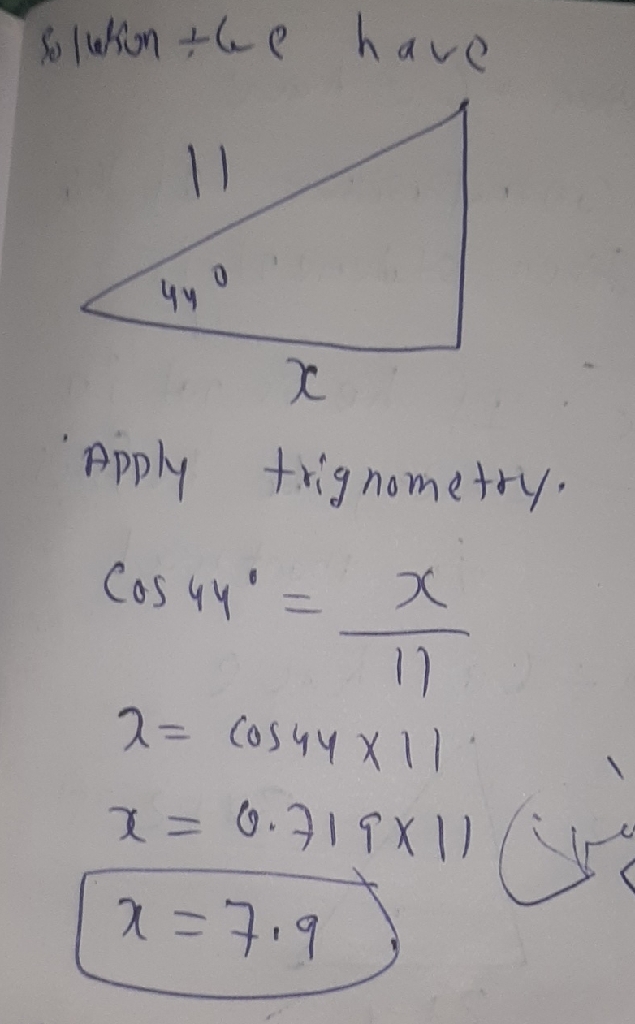 Solution we have
11
44°
x
Apply trignometry.
Cos 44° = x
11
x = cos 44 x 11
x = 0.719 x 11
x = 7.9